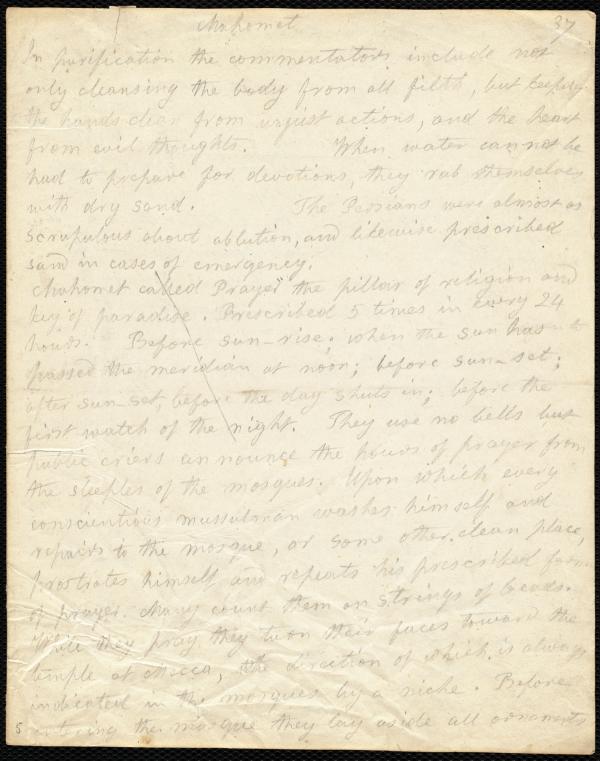 Mahomet 37
In purification the commentators include not
only cleansing the body from all filth, but keeping
the hands clean from unjust actions, and the heart
from evil thoughts. When water can not be
had to prepare for devotions, they rub themselves
with dry sand. The Persians were almost as
scrupulous about ablution, and likewise prescribed
sand in cases of emergency.
Mahomet called Prayer the pillar of religion and
key of paradise. Prescribed 5 times in every 24
hours. Before sun-rise; when the sun has
passed the meridian at noon; before sun-set;
after sun-set, before the day shuts in; before the
first watch of the night. They use no bells but
public criers announce the hours of prayer from
the steeples of the mosques. Upon which every
conscientious mussulman washes himself and
repairs to the mosque, or some other clean place,
prostrates himself and repeats his prescribed form
of prayer. Many count them on strings of beads.
While they pray they turn their faces toward the
temple at Mecca, the direction of which is always
indicated in the mosques by a niche. Before
entering the mosque they lay aside all ornaments
5